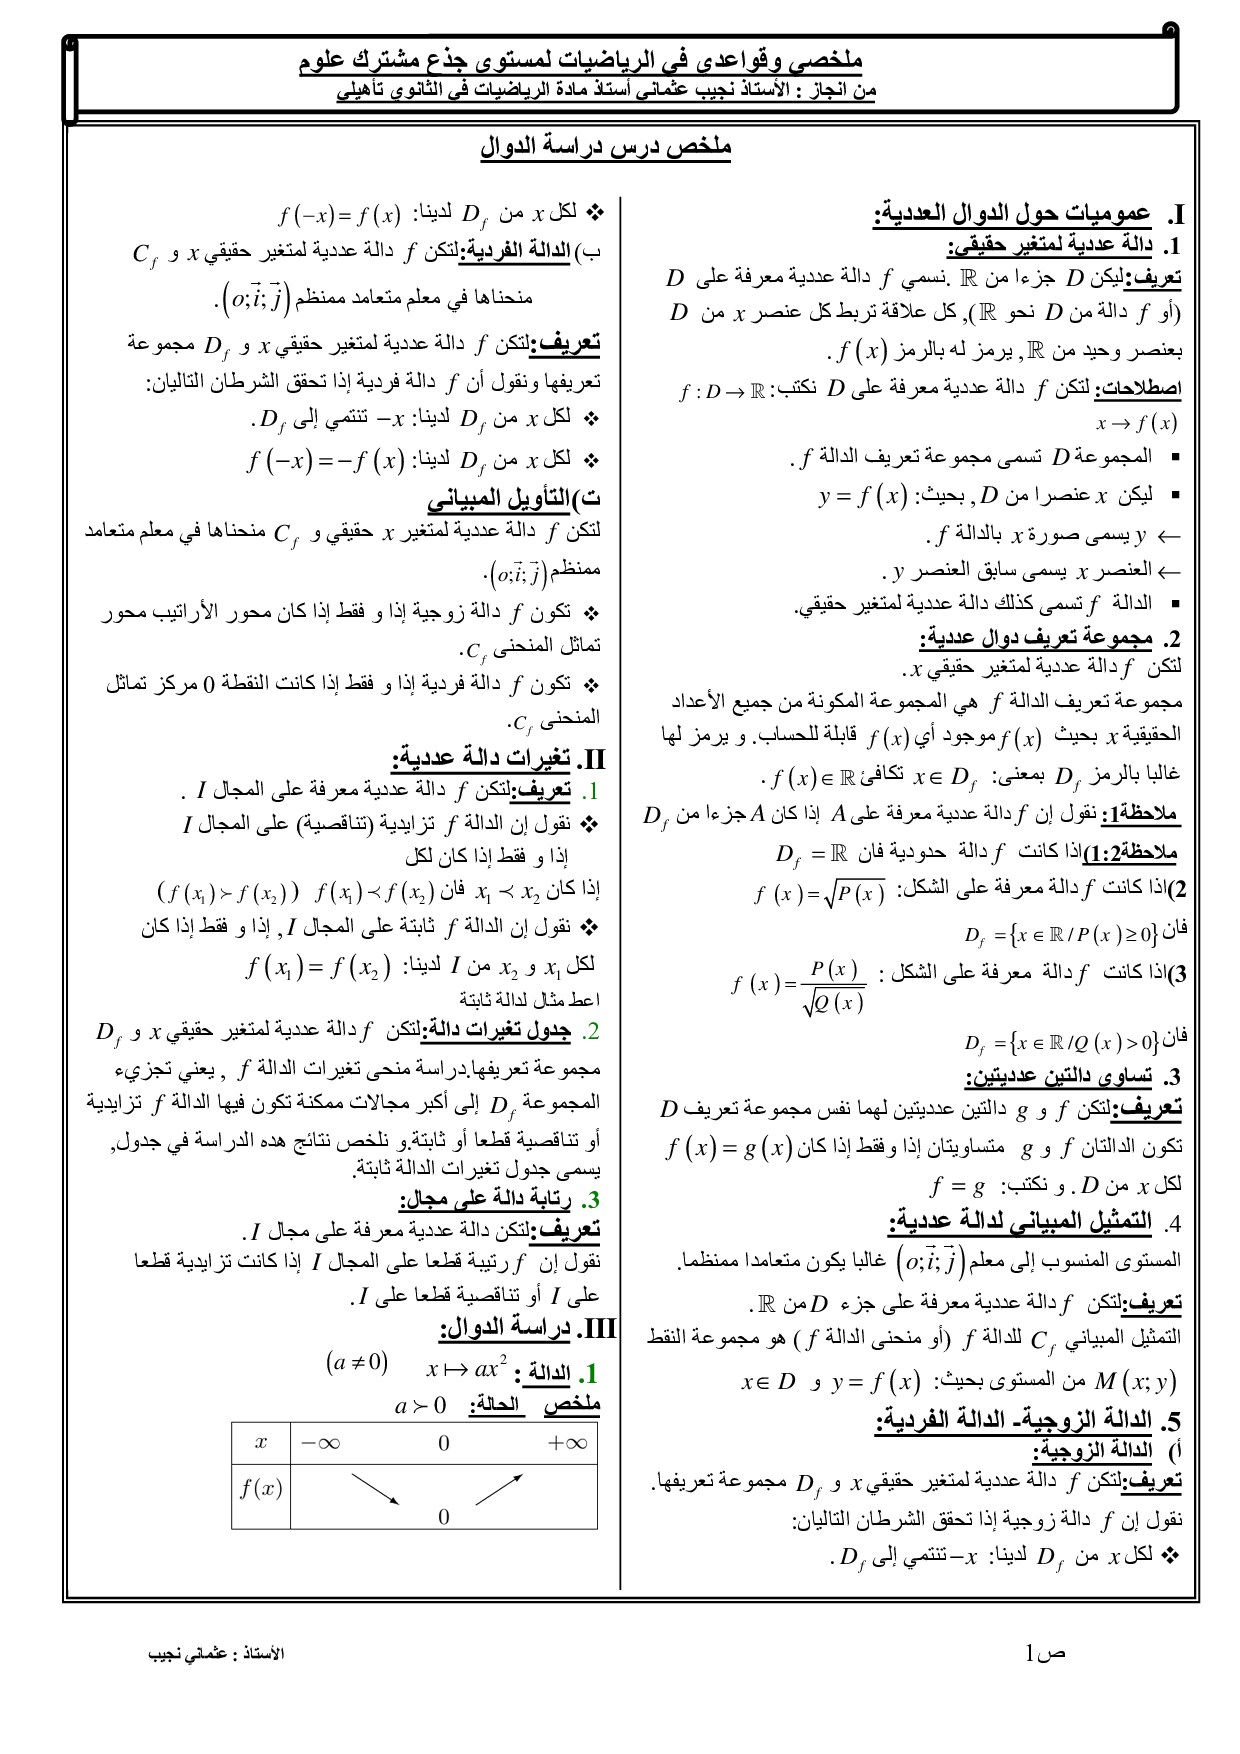 ملخصي وقواعدي في الرياضيات لمستوى جذع مشترك علوم
من انجاز : الأستاذ نجيب عثماني أستاذ مادة الرياضيات في الثانوي تأهيلي
ملخص درس دراسة الدوال
I. عموميات حول الدوال العددية:
1. دالة عددية لمتغير حقيقي:
تعريف:ليكن D جزءا من ℝ .نسمي f دالة عددية معرفة على D
(أو f دالة من D نحو ℝ), كل علاقة تربط كل عنصر x من D
بعنصر وحيد من ℝ, يرمز له بالرمز f(x) .
اصطلاحات: لتكن f دالة عددية معرفة على D نكتب: f : D → ℝ
x → f(x)
▪ المجموعة D تسمى مجموعة تعريف الدالة f .
▪ ليكن x عنصرا من D, بحيث: y = f(x)
← y يسمى صورة x بالدالة f .
← العنصر x يسمى سابق العنصر y .
▪ الدالة f تسمى كذلك دالة عددية لمتغير حقيقي.
2. مجموعة تعريف دوال عددية:
لتكن f دالة عددية لمتغير حقيقي x.
مجموعة تعريف الدالة f هي المجموعة المكونة من جميع الأعداد
الحقيقية x بحيث f(x) موجود أي f(x) قابلة للحساب. و يرمز لها
غالبا بالرمز D_f بمعنى: x ∈ D_f تكافئ f(x) ∈ ℝ .
ملاحظة1: نقول إن f دالة عددية معرفة على A إذا كان A جزءا من D_f
ملاحظة2:1)اذا كانت f دالة حدودية فان D_f = ℝ
2)اذا كانت f دالة معرفة على الشكل: f(x) = √P(x)
فان D_f = {x ∈ ℝ / P(x) ≥ 0}
3)اذا كانت f دالة معرفة على الشكل : f(x) = P(x)/√Q(x)
فان D_f = {x ∈ ℝ / Q(x) > 0}
3. تساوي دالتين عدديتين:
تعريف:لتكن f و g دالتين عدديتين لهما نفس مجموعة تعريف D
تكون الدالتان f و g متساويتان إذا وفقط إذا كان f(x) = g(x)
لكل x من D . و نكتب: f = g
4. التمثيل المبياني لدالة عددية:
المستوى المنسوب إلى معلم (o;i⃗;j⃗) غالبا يكون متعامدا ممنظما.
تعريف:لتكن f دالة عددية معرفة على جزء D من ℝ .
التمثيل المبياني C_f للدالة f (أو منحنى الدالة f ) هو مجموعة النقط
M(x;y) من المستوى بحيث: y = f(x) و x ∈ D
5. الدالة الزوجية- الدالة الفردية:
أ) الدالة الزوجية:
تعريف:لتكن f دالة عددية لمتغير حقيقي x و D_f مجموعة تعريفها.
نقول إن f دالة زوجية إذا تحقق الشرطان التاليان:
❖ لكل x من D_f لدينا: −x تنتمي إلى D_f .
❖ لكل x من D_f لدينا: f(−x) = f(x)
ب)الدالة الفردية:لتكن f دالة عددية لمتغير حقيقي x و C_f
منحناها في معلم متعامد ممنظم (o;i⃗;j⃗).
تعريف:لتكن f دالة عددية لمتغير حقيقي x و D_f مجموعة
تعريفها ونقول أن f دالة فردية إذا تحقق الشرطان التاليان:
❖ لكل x من D_f لدينا: −x تنتمي إلى D_f.
❖ لكل x من D_f لدينا: f(−x) = −f(x)
ت)التأويل المبياني
لتكن f دالة عددية لمتغير x حقيقي و C_f منحناها في معلم متعامد
ممنظم (o;i⃗;j⃗).
❖ تكون f دالة زوجية إذا و فقط إذا كان محور الأراتيب محور
تماثل المنحنى C_f.
❖ تكون f دالة فردية إذا و فقط إذا كانت النقطة 0 مركز تماثل
المنحنى C_f.
II. تغيرات دالة عددية:
1. تعريف:لتكن f دالة عددية معرفة على المجال I .
❖ نقول إن الدالة f تزايدية (تناقصية) على المجال I
إذا و فقط إذا كان لكل
إذا كان x₁ ≺ x₂ فان f(x₁) ≺ f(x₂) (f(x₁) ≻ f(x₂))
❖ نقول إن الدالة f ثابتة على المجال I, إذا و فقط إذا كان
لكل x₁ و x₂ من I لدينا: f(x₁) = f(x₂)
اعط مثال لدالة ثابتة
2. جدول تغيرات دالة:لتكن f دالة عددية لمتغير حقيقي x و D_f
مجموعة تعريفها.دراسة منحى تغيرات الدالة f , يعني تجزيء
المجموعة D_f إلى أكبر مجالات ممكنة تكون فيها الدالة f تزايدية
أو تناقصية قطعا أو ثابتة.و نلخص نتائج هده الدراسة في جدول,
يسمى جدول تغيرات الدالة ثابتة.
3. رتابة دالة على مجال:
تعريف:لتكن دالة عددية معرفة على مجال I .
نقول إن f رتيبة قطعا على المجال I إذا كانت تزايدية قطعا
على I أو تناقصية قطعا على I .
III. دراسة الدوال:
1. الدالة : x ↦ ax² (a ≠ 0)
ملخص الحالة: a ≻ 0
x −∞ 0 +∞
f(x) 0
ص1
الأستاذ : عثماني نجيب